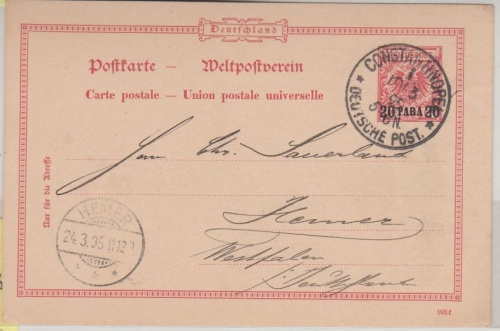 Deutschland
Postkarte — Weltpostverein
Carte postale — Union postale universelle
CONSTANTINOPEL 1
* DEUTSCHE POST. *
20 PARA 20
Nur für die Adresse
Herrn Chr. Sauerland
Hemer
Westfalen
Deutschland
HEMER
24.3.95.11-12